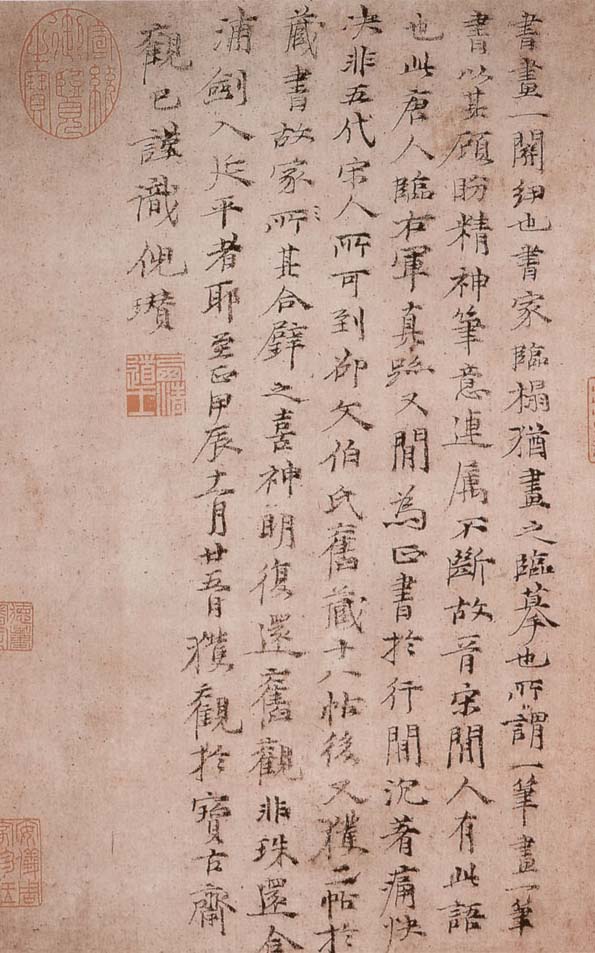 書畫一關紐也書家臨榻猶畫之臨摹也所謂一筆畫一筆
書以其顧盼精神筆意連属不斷故晉宋間人有此語
也此唐人臨右軍真跡又間為正書於行間沉著痛快
决非五代宋人所可到邵文伯氏舊藏十八帖後又獲二帖於
藏書故家所其合璧之喜神明復還舊觀非珠還合
浦劍入延平者耶至正甲辰月廿五日獲觀於寶古齋
觀已謹識倪瓚
宣統御覽之寶